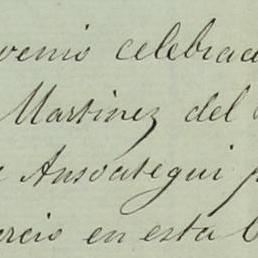 venio celebrad
Martinez del
Ansoategui p
ercio en esta C